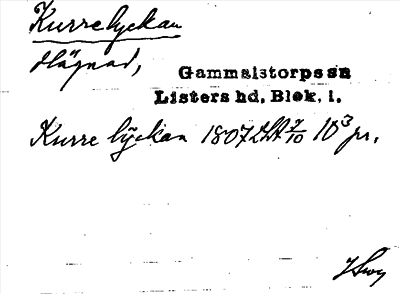 Kurrelyckan
Hägnad,
Gammalstorps sn
Listers hd, Blek. l.
Kurre lyckan 1807 LSA 7/10 103 pr.